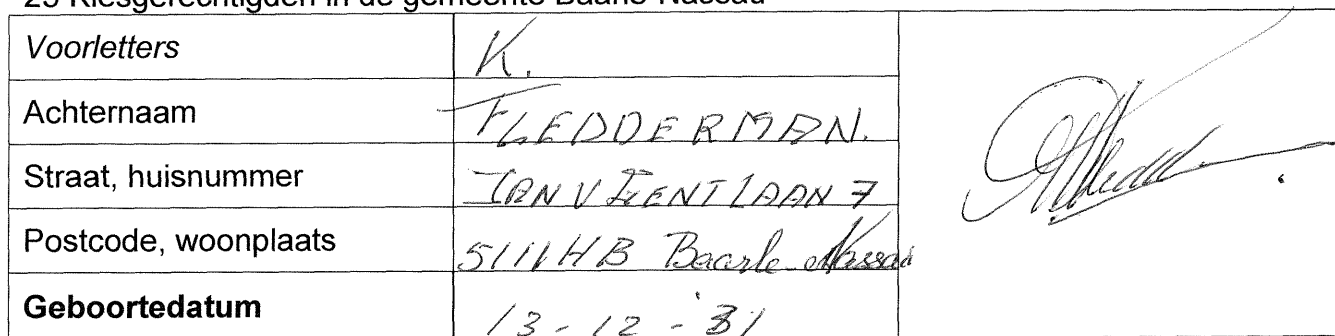 25 Kiesgerechtigden in de gemeente Baarle-Nassau
Voorletters K.
Achternaam FLEDDERMAN.
Straat, huisnummer LAAN 7
Postcode, woonplaats 5111HB Baarle Nassau
Geboortedatum 13-12-31